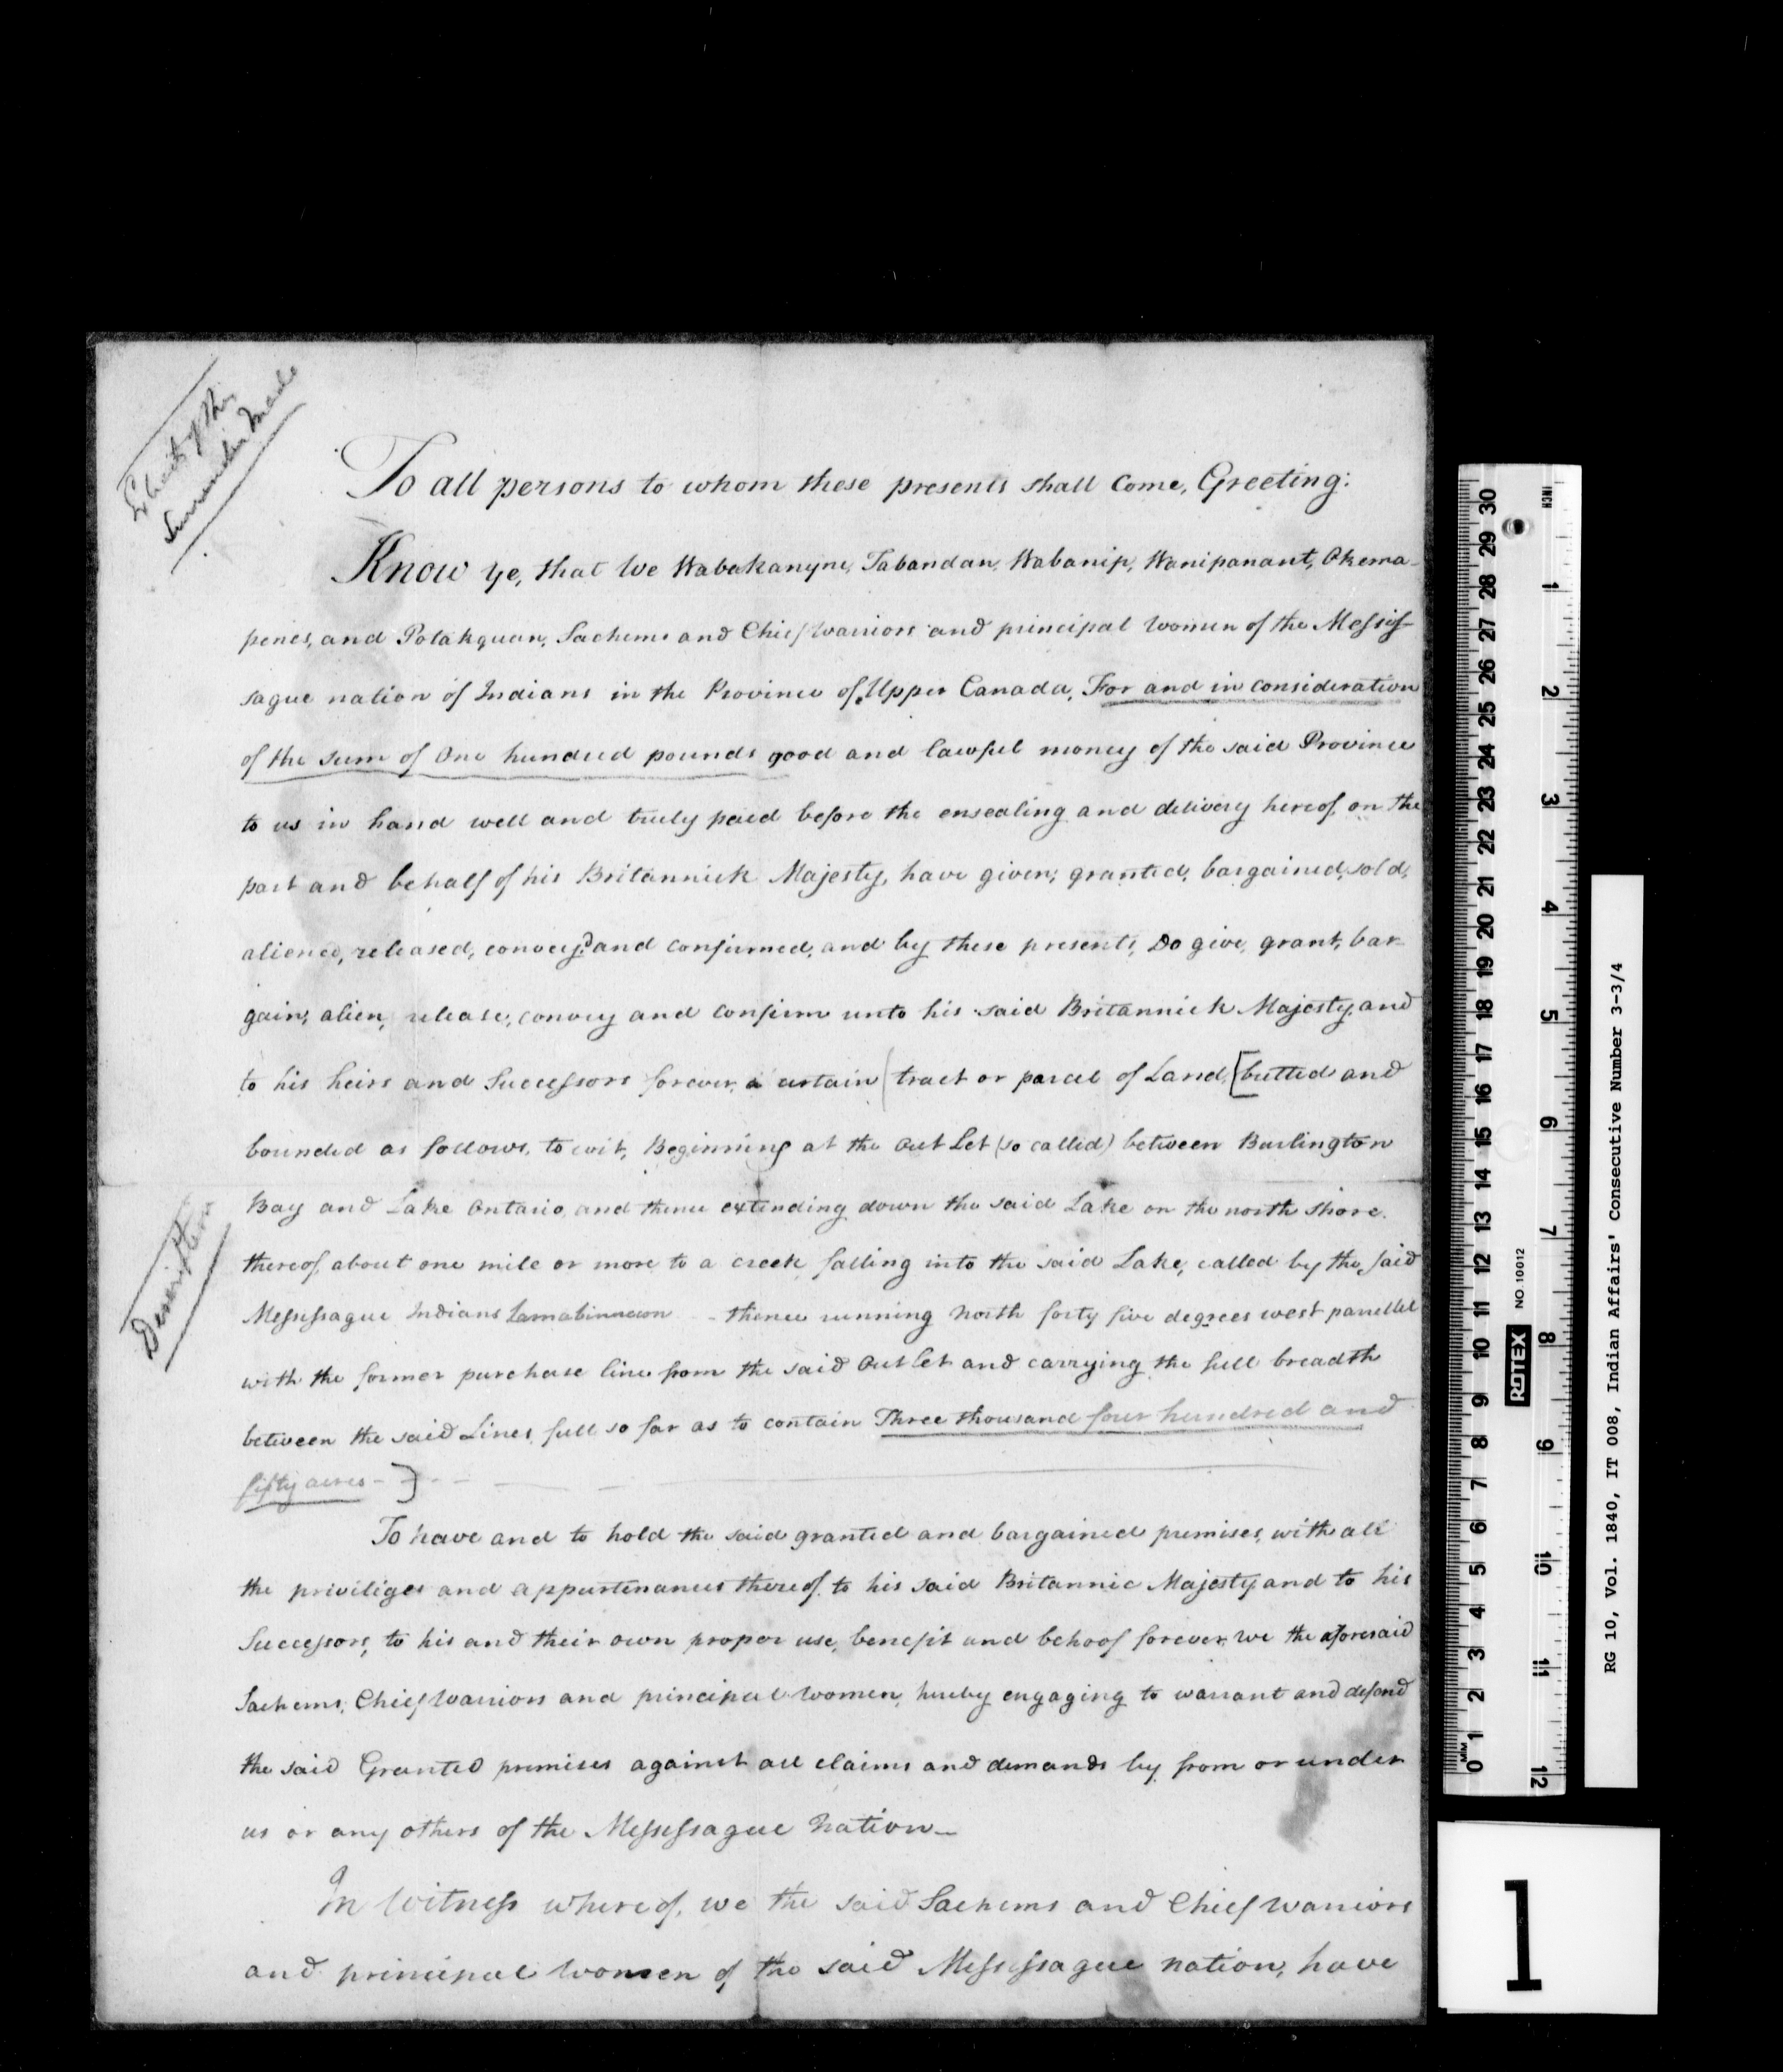 Surrender Made
To all persons to whom these presents shall Come, Greeting:
Know ye, that We Wabakanyne, Tabandan, Wabanip, Wanipanant, Okema-
penes, and Potakquan, Sachems and Chief Warriors and principal Women of the Messis-
sague nation of Indians in the Province of Upper Canada, For and in consideration
of the sum of One hundred pounds good and lawful money of the said Province
to us in hand well and truly paid before the ensealing and delivery hereof, on the
part and behalf of his Britannick Majesty, have given, granted, bargained, sold,
aliened, released, convey'd and confirmed, and by these presents, Do give, grant, bar-
gain, alien, release, convey and confirm unto his said Britannick Majesty, and
to his heirs and Successors forever, a certain (tract or parcel of Land, [butted and
bounded as follows, to wit, Beginning at the Out Let (so called) between Burlington
Bay and Lake Ontario, and thence extending down the said Lake on the north shore
thereof, about one mile or more to a creek falling into the said Lake, called by the said
Messissague Indians Lamabinnecon - thence running North forty five degrees west parrellel
with the former purchase line from the said Out Let and carrying the full breadth
between the said Lines, full so far as to contain Three thousand four hundred and
fifty acres - ]
To have and to hold the said granted and bargained premises, with all
the priviliges and appurtenances thereof, to his said Britannic Majesty and to his
Successors, to his and their own proper use, benefit and behoof forever, We the aforesaid
Sachems, Chief Warriors and principal Women, hereby engaging to warrant and defend
the said Granted premises against all claims and demands by from or under
us or any others of the Messissague Nation_
In Witness whereof, we the said Sachems and Chief Warriors
and principal Women of the said Messissague nation, have
Description
30 29 28 27 26 25 24 23 22 21 20 19 18 17 16 15 14 13 12 11 10 9 8 7 6 5 4 3 2 1 0
MM
INCH
1 2 3 4 5 6 7 8 9 10 11 12
ROTEX NO. 10012
RG 10, Vol. 1840, IT 008, Indian Affairs' Consecutive Number 3-3/4
1